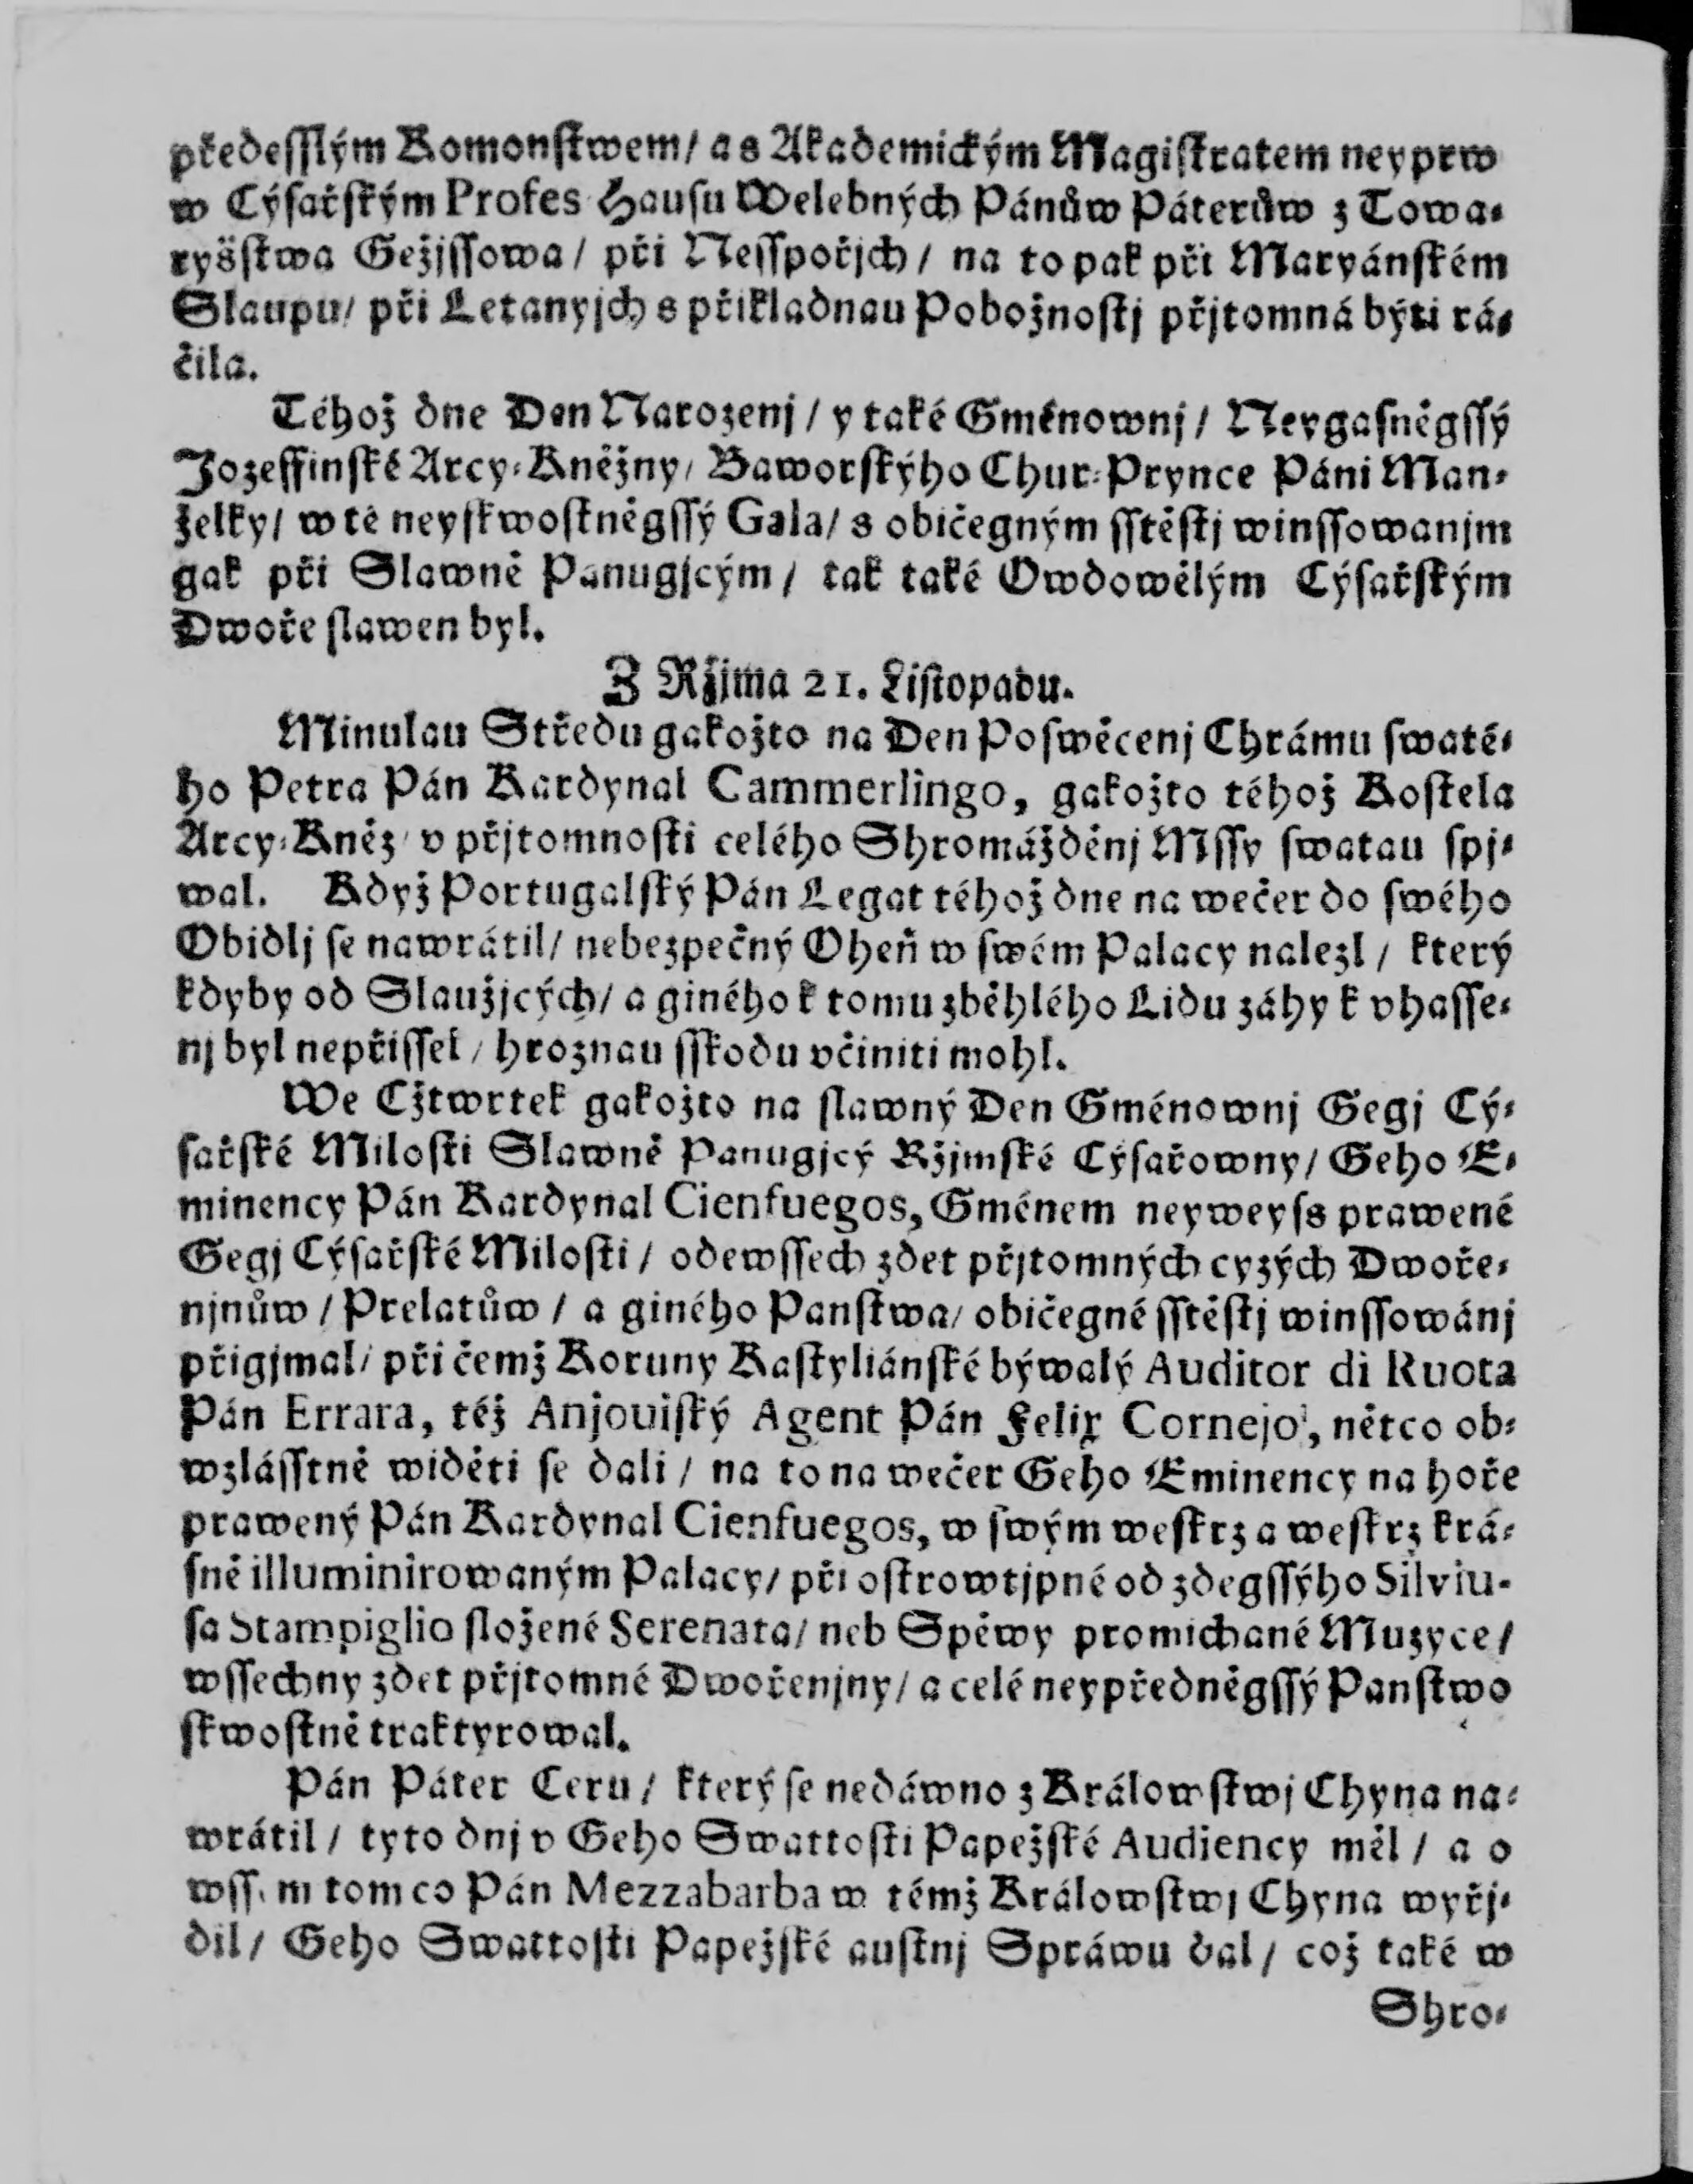 předeſſlým Komonſtwem/ a s Akademickým Magiſtratem neyprw
w Cýſařſkým Profes Hauſu Welebných Pánůw Páterůw z Towa-
ryšſtwa Gežjſſowa/ při Neſſpořjch/ na to pak při Maryánſkém
Slaupu/ při Letanyjch s přikladnau Pobožnoſtj přjtomná býti rá-
čila.
Téhož dne Den Narozenj/ y také Gménownj/ Neygaſněgſſý
Jozeffinſké Arcy-Kněžny/ Baworſkýho Chur-Prynce Páni Man-
želky/ w té neyſkwoſtněgſſý Gala/ s običegným ſſtěſtj winſſowanjm
gak při Slawně Panugjcým/ tak také Owdowělým Cýſařſkým
Dwoře ſlawen byl.
Z Ržjma 21. Liſtopadu.
Minulau Středu gakožto na Den Poſwěcenj Chrámu ſwaté-
ho Petra Pán Kardynal Cammerlingo, gakožto téhož Koſtela
Arcy-Kněz/ v přjtomnoſti celého Shromážděnj Mſſy ſwatau ſpj-
wal. Když Portugalſký Pán Legat téhož dne na wečer do ſwého
Obidlj ſe nawrátil/ nebezpečný Oheň w ſwém Palacy nalezl/ který
kdyby od Slaužjcých/ a giného k tomu zběhlého Lidu záhy k vhaſſe-
nj byl nepřiſſel/ hroznau ſſkodu včiniti mohl.
We Cžtwrtek gakožto na ſlawný Den Gménownj Gegj Cý-
ſařſké Miloſti Slawně Panugjcý Ržjmſké Cýſařowny/ Geho E-
minency Pán Kardynal Cienfuegos, Gménem neyweyſs prawené
Gegj Cýſařſké Miloſti/ odewſſech zdet přjtomných cyzých Dwoře-
njnůw/ Prelatůw/ a giného Panſtwa/ običegné ſſtěſtj winſſowánj
přigjmal/ při čemž Koruny Kaſtyliánſké býwalý Auditor di Ruota
Pán Errara, též Anjouiſký Agent Pán Felix Cornejo, nětco ob-
wzláſſtně widěti ſe dali/ na to na wečer Geho Eminency na hoře
prawený Pán Kardynal Cienfuegos, w ſwým weſkrz a weſkrz krá-
ſně illuminirowaným Palacy/ při oſtrowtjpné od zdegſſýho Silviu-
ſa Stampiglio ſložené Serenata/ neb Spěwy promichané Muzyce/
wſſechny zdet přjtomné Dwořenjny/ a celé neypředněgſſý Panſtwo
ſkwoſtně traktyrowal.
Pán Páter Ceru/ který ſe nedáwno z Králowſtwj Chyna na-
wrátil/ tyto dnj v Geho Swattoſti Papežſké Audiency měl/ a o
wſſem tom co Pán Mezzabarba w témž Králowſtwj Chyna wyřj-
dil/ Geho Swattoſti Papežſké auſtnj Spráwu dal/ což také w
Shro-